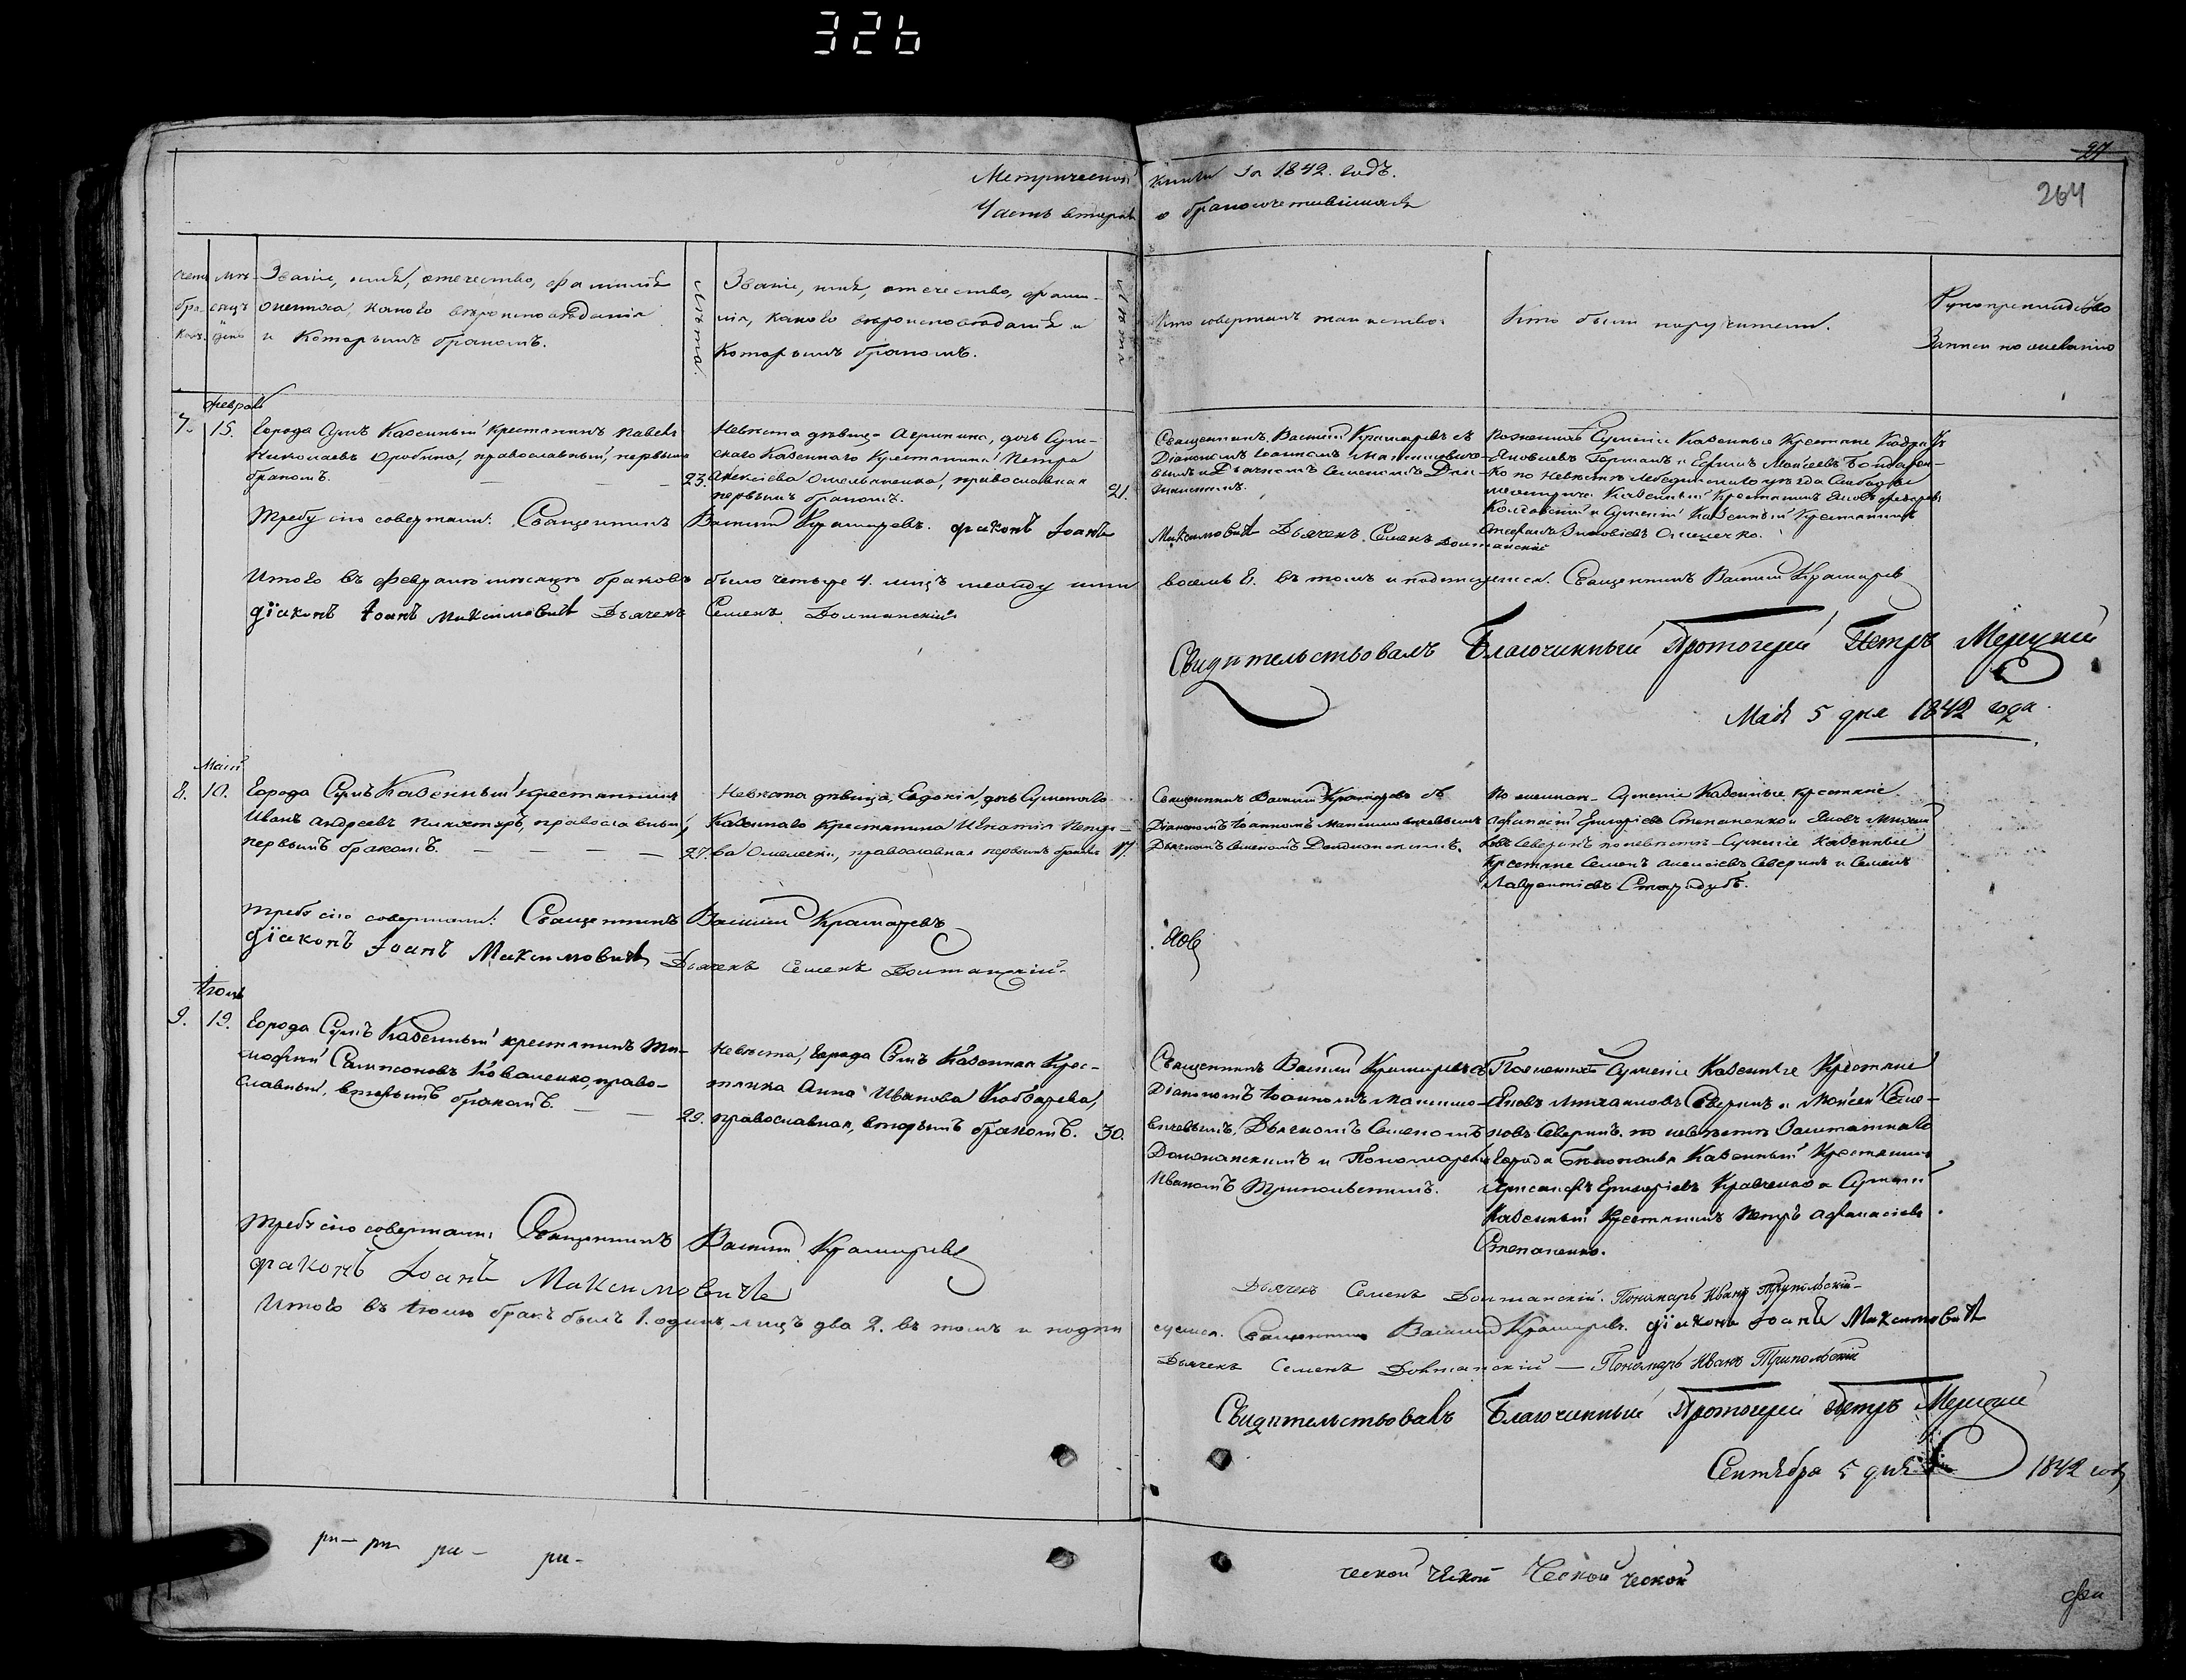 326
27
264
Метрической книги за 1842. годъ.
Часть вторая о бракосочетавшихся
Званіе, имя, отечество, фамилія
жениха, какого вѣроисповѣданія
и которымъ бракомъ.
Лѣта.
Званіе, имя, отечество, фами-
лія, какого вѣроисповѣданія и
которымъ бракомъ.
Лѣта
Кто совершалъ таинство.
Кто были поручители.
Рукоприкладство
Записи по желанію
Февраль
7. 15.
Города Сумъ Казенный крестьянинъ Павелъ
Николаевъ православный, первымъ
бракомъ. 23.
Невѣста дѣвица Агрипина, дочь Сум-
скаго Казеннаго Крестьянина Петра
Алексіева Омельяненка, православная
первымъ бракомъ. 21.
Священникъ Василій Крамаревъ съ
Діакономъ Іоанномъ Максимовиче-
вымъ и Дьячкомъ Семеномъ
По женихѣ Сумскіе Казенные Крестьяне
Яковлевъ и Ефимъ Моисеевъ Бондарен-
ко по Невѣстѣ Лебединскаго уѣзда Слободы
Казенный Крестьянинъ Яковъ
и Сумскій Казенный Крестьянинъ
Стефанъ
Требу сію совершали: Священникъ Василій Крамаревъ. Діаконъ Іоаннъ
Максимовичъ Дьячекъ Семенъ Долтанскій
Итого въ февралѣ мѣсяцѣ браковъ было четыре 4. лицъ между ими восемь 8. въ томъ и подписуемся. Священникъ Василій Крамаревъ
діаконъ Іоаннъ Максимовичъ Дьячекъ Семенъ Долтанскій
Свидѣтельствовалъ Благочинный Протоіерей Петръ
Маія 5 дня 1842 года.
Маій
8. 10.
Города Сумъ Казенный крестьянинъ
Иванъ Андреевъ православный,
первымъ бракомъ. 27.
Невѣста дѣвица, Евдокія, дочь Сумскаго
Казеннаго крестьянина Игнатія
православная первымъ бракомъ 17.
Священникъ Василій Крамаревъ съ
Діакономъ Іоанномъ Максимовичевымъ
Дьячкомъ Семеномъ
По женихѣ Сумскіе Казенные крестьяне
Афанасій Григоріевъ Степаненко и Яковъ Михай-
ловъ Северинъ по невѣстѣ Сумскіе Казенные
Крестьяне Семенъ Алексіевъ Северинъ и Семенъ
Лаврентіевъ Стародубъ.
Требу сію совершали: Священникъ Василій Крамаревъ
діаконъ Іоаннъ Максимовичъ Дьячекъ Семенъ Долтанскій.
Іюль
9. 19.
Города Сумъ Казенный крестьянинъ Ти-
мофей Сампсоновъ Коваленко, право-
славный, вторымъ бракомъ. 29.
Невѣста, Города Сумъ Казенная Крес-
тьянка Анна Иванова
православная, вторымъ бракомъ. 30.
Священникъ Василій Крамаревъ съ
Діакономъ Іоанномъ Максимо-
вичевымъ, Дьячкомъ Семеномъ
и Пономаремъ
Иваномъ Трипольскимъ.
По женихѣ Сумскіе Казенные Крестьяне
Яковъ Михайловъ Северинъ и Моисей Семе-
новъ Северинъ. по невѣстѣ Заштатнаго
Города Бѣлополья Казенный Крестьянинъ
Григоріевъ Кравченко и Сумской
Казенный Крестьянинъ Петръ Афанасіевъ
Степаненко.
Требу сію совершали: Священникъ Василій Крамаревъ
діаконъ Іоаннъ Максимовичъ
Дьячекъ Семенъ Долтанскій. Пономарь Иванъ Трипольскій
Итого въ Іюлѣ бракъ былъ 1. одинъ, лицъ два 2. въ томъ и подпи
суемся. Священникъ Василій Крамаревъ. діаконъ Іоаннъ Максимовичъ
Дьячекъ Семенъ Долтанскій — Пономарь Иванъ Трипольскій
Свидѣтельствовалъ Благочинный Протоіерей Петръ
Сентября 5 дня 1842 года
ри- ри ри- ри-
ческой ческой ческой ческой